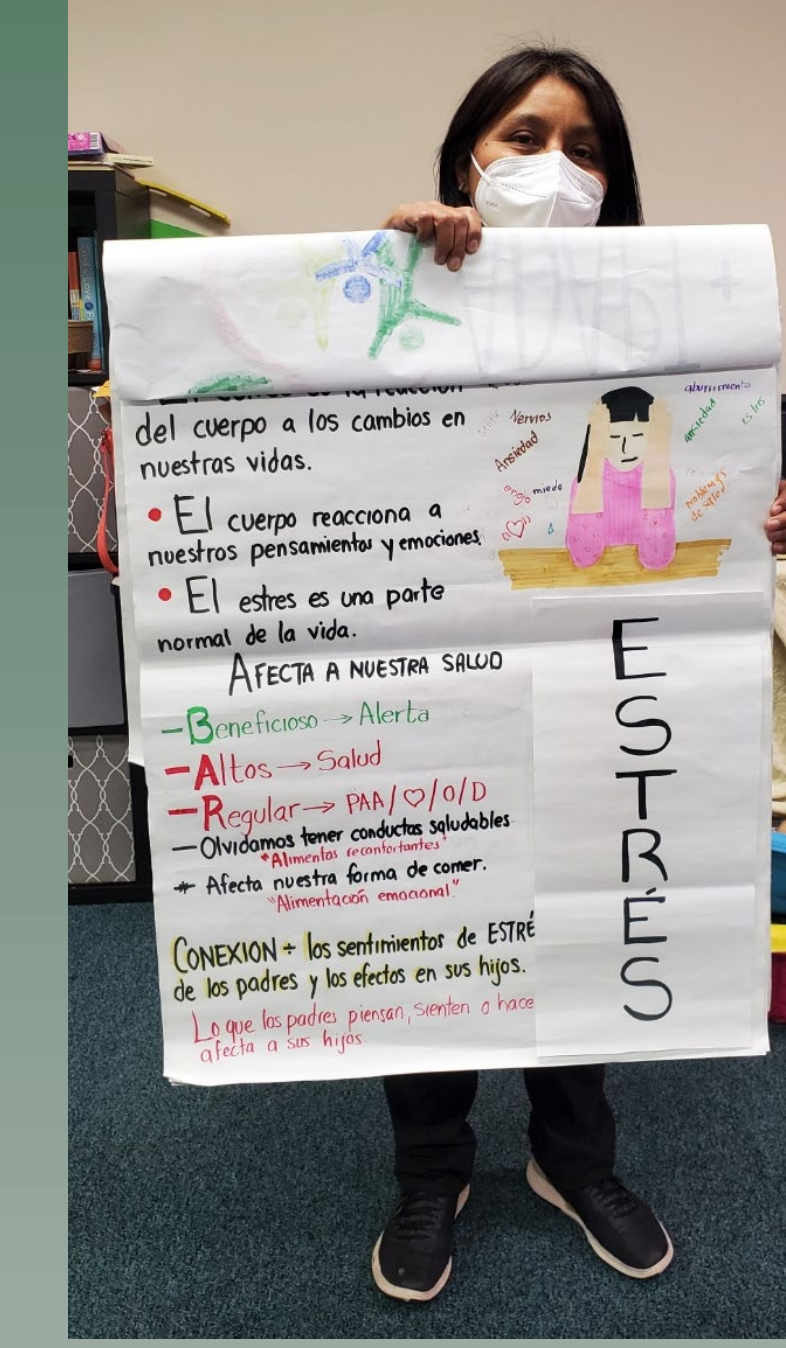 del cuerpo a los cambios en
nuestras vidas.
• El cuerpo reacciona a
nuestros pensamientos y emociones.
• El estres es una parte
normal de la vida.
AFECTA A NUESTRA SALUD
- Beneficioso → Alerta
- Altos → Salud
- Regular → PAA/♡/O/D
- Olvidamos tener conductas saludables
"Alimentos reconfortantes"
* Afecta nuestra forma de comer.
"Alimentación emocional"
CONEXION ÷ los sentimientos de ESTRÉ
de los padres y los efectos en sus hijos.
Lo que los padres piensan, sienten o hace
afecta a sus hijos
Nervios
Ansiedad
enojo
miedo
aburrimiento
ansiedad
estres
problemas
de salud
E
S
T
R
É
S